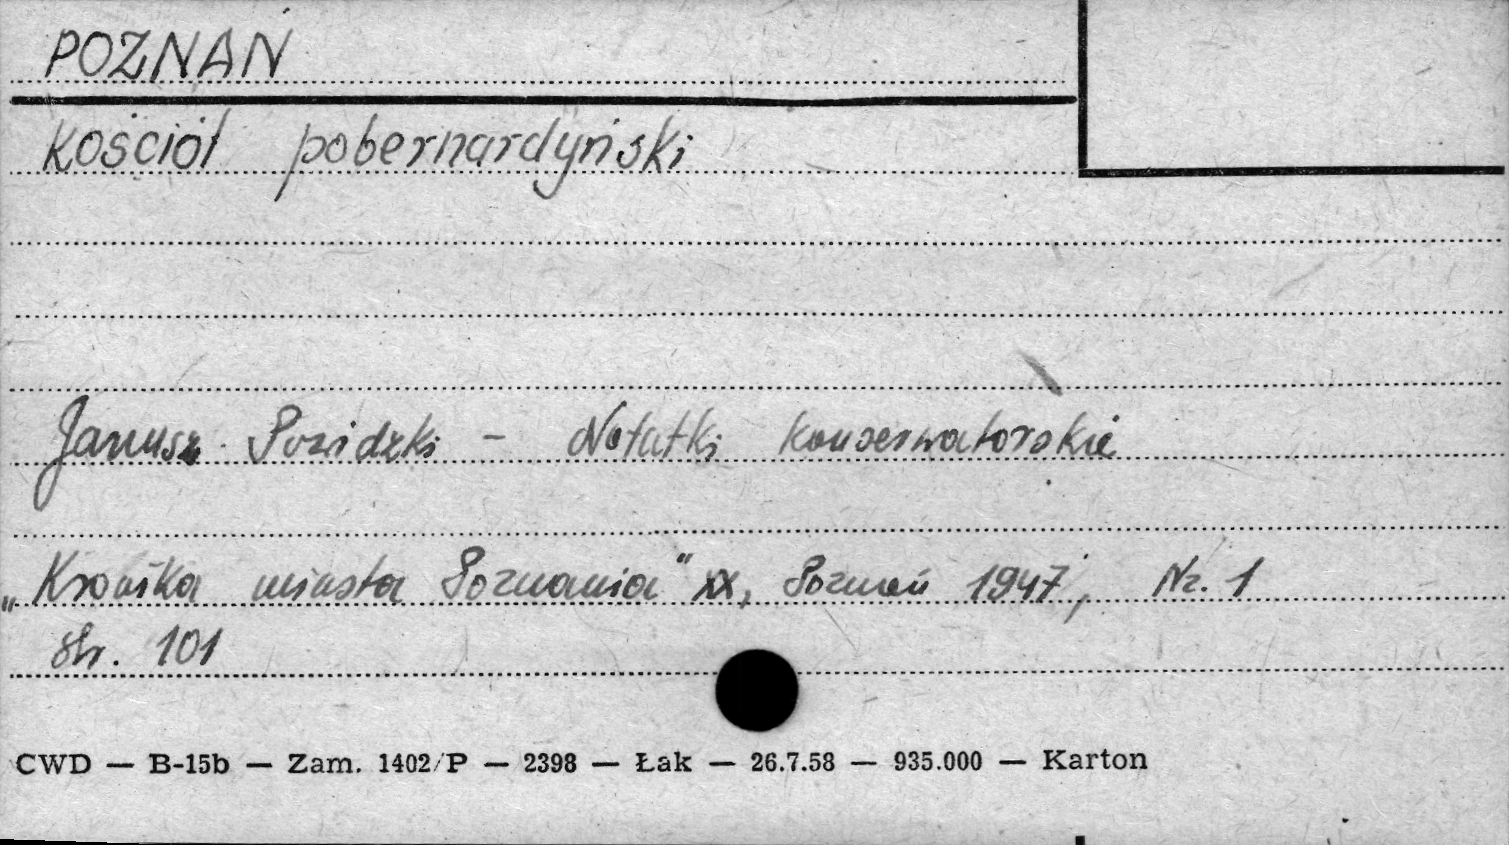 POZNAŃ
Kościół pobernardyński
Janusz Powidzki - Notatki konserwatorskie
„Kronika miasta Poznania" XX, Poznań 1947, Nr. 1
str. 101
CWD — B-15b — Zam. 1402/P — 2398 — Łak — 26.7.58 — 935.000 — Karton